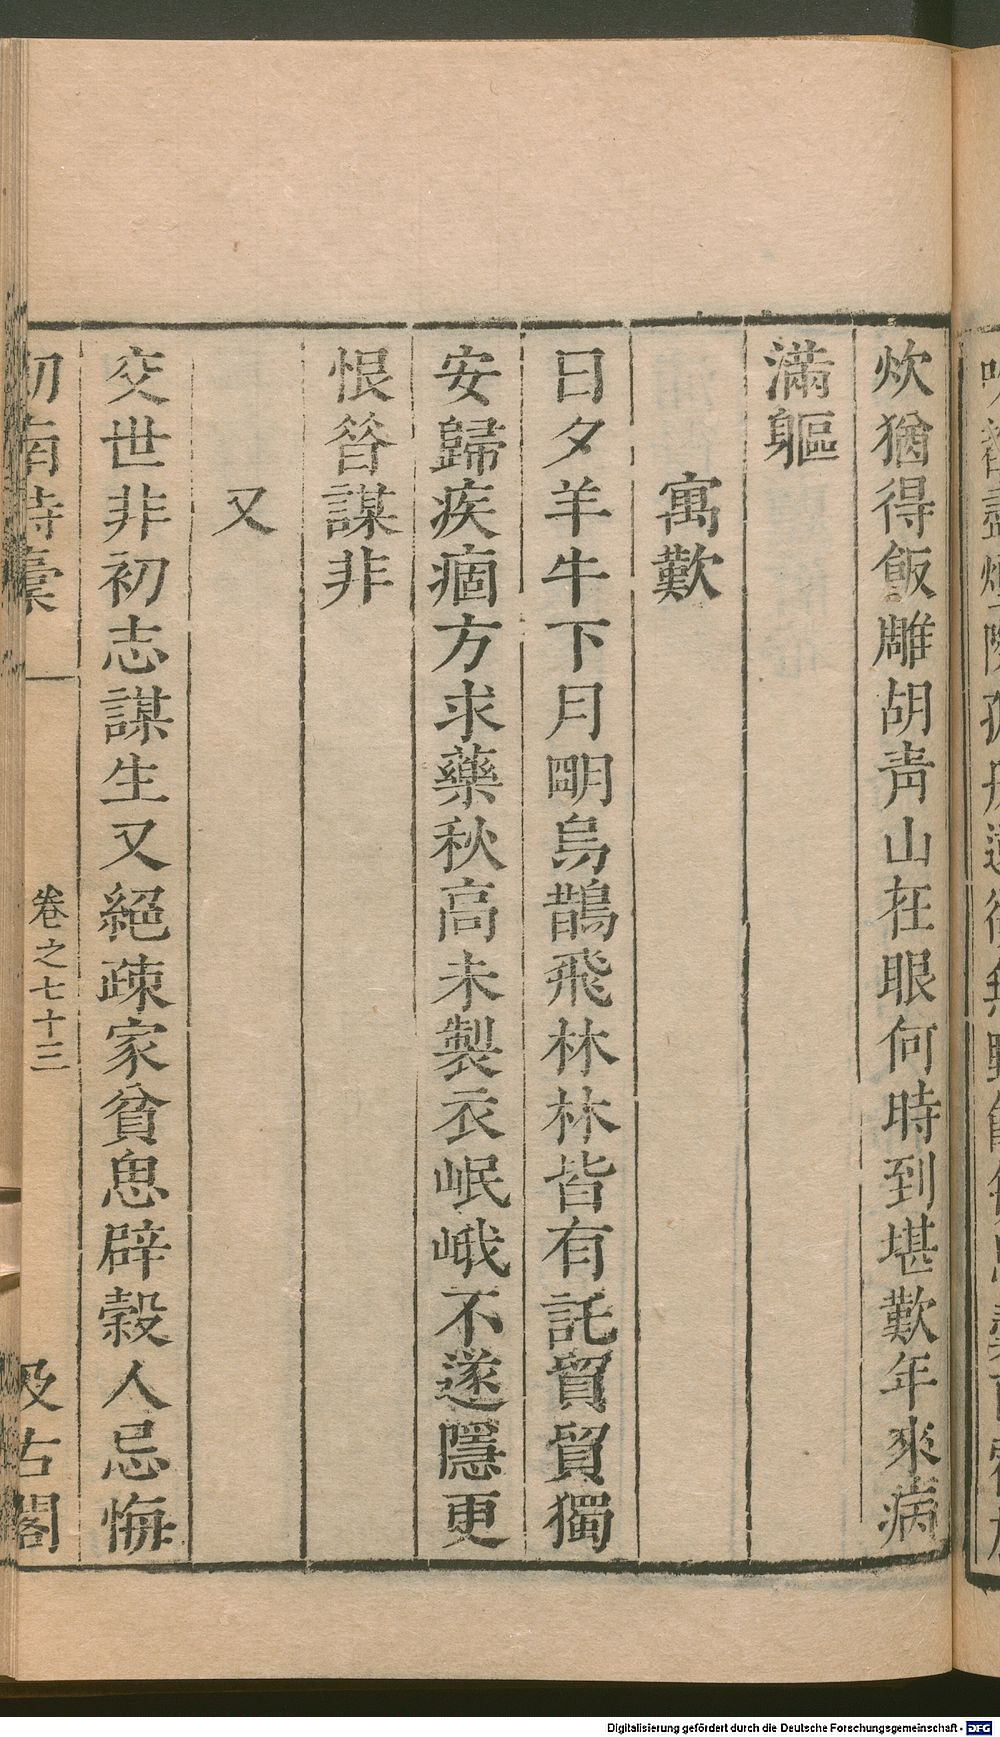 炊猶得飯雕胡靑山在眼何時到堪歎年來病
滿軀
寓歎
日夕羊牛下月朙烏鵲飛林林皆有託貿貿獨
安歸疾痼方求藥秋高未製衣岷峨不遂隱更
恨昝謀非
又
交世非初志謀生又絕疎家貧思辟穀人忌悔
劒南詩稾
卷之七十三
汲古閣
Digitalisierung gefördert durch die Deutsche Forschungsgemeinschaft - DFG